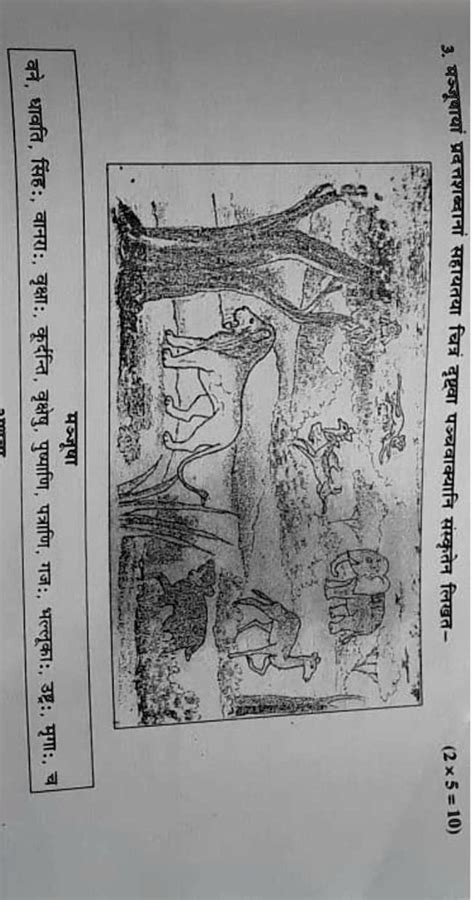 ३. मञ्जूषायां प्रदत्तशब्दानां सहायतया चित्रं दृष्ट्वा पञ्चवाक्यानि संस्कृतेन लिखत– (2 x 5 = 10)
मञ्जूषा
वने, धावति, सिंहः, वानराः, वृक्षाः, कूर्दन्ति, वृक्षेषु, पुष्पाणि, पत्राणि, गजः, भल्लूकाः, उष्ट्रः, मृगाः, च